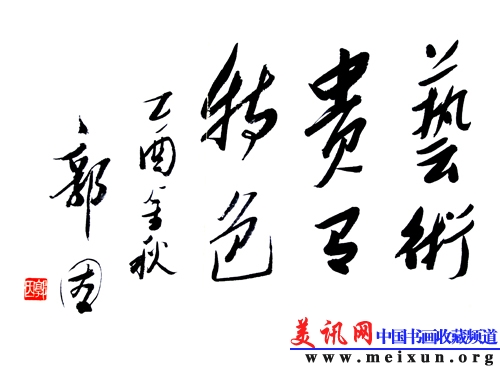 藝術
貴有
特色
乙酉金秋
郭因
郭因
美讯网 中国书画收藏频道
www.meixun.org